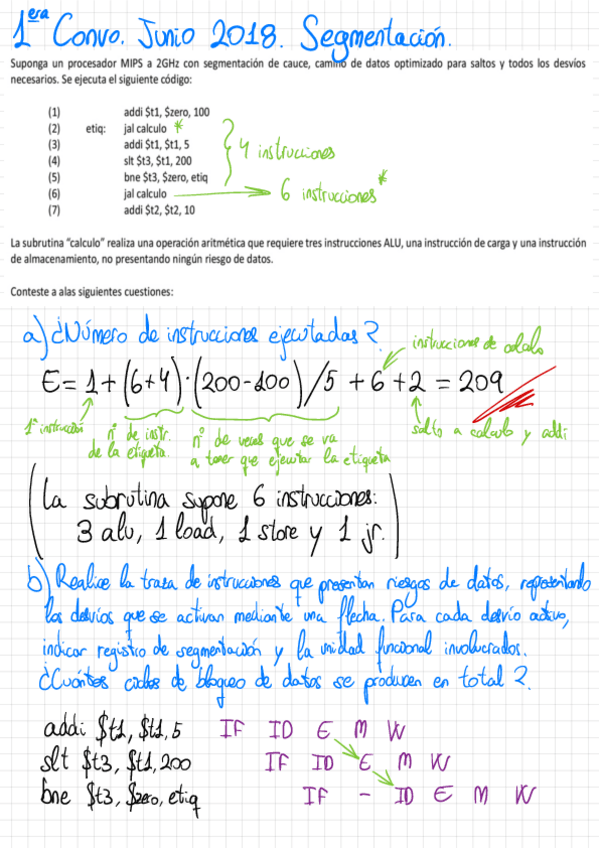 1era Convo. Junio 2018. Segmentación.
Suponga un procesador MIPS a 2GHz con segmentación de cauce, camino de datos optimizado para saltos y todos los desvíos
necesarios. Se ejecuta el siguiente código:
(1) addi $t1, $zero, 100
(2) etiq: jal calculo *
(3) addi $t1, $t1, 5
(4) slt $t3, $t1, 200
(5) bne $t3, $zero, etiq
(6) jal calculo
(7) addi $t2, $t2, 10
4 instrucciones
6 instrucciones *
La subrutina "calculo" realiza una operación aritmética que requiere tres instrucciones ALU, una instrucción de carga y una instrucción
de almacenamiento, no presentando ningún riesgo de datos.
Conteste a alas siguientes cuestiones:
a) ¿Número de instrucciones ejecutadas?
instrucciones de calculo
E = 1 + (6+4) · (200-100)/5 + 6 + 2 = 209
1ª instrucción
nº de instr.
de la etiqueta.
nº de veces que se va
a tener que ejecutar la etiqueta
salto a calculo y addi
(La subrutina supone 6 instrucciones:
3 alu, 1 load, 1 store y 1 jr.)
b) Realice la traza de instrucciones que presentan riesgos de datos, representando
los desvíos que se activan mediante una flecha. Para cada desvío activo,
indicar registro de segmentación y la unidad funcional involucrados.
¿Cuántos ciclos de bloqueo de datos se producen en total?
addi $t1, $t1, 5 IF ID E M W
slt $t3, $t1, 200 IF ID E M W
bne $t3, $zero, etiq IF - ID E M W